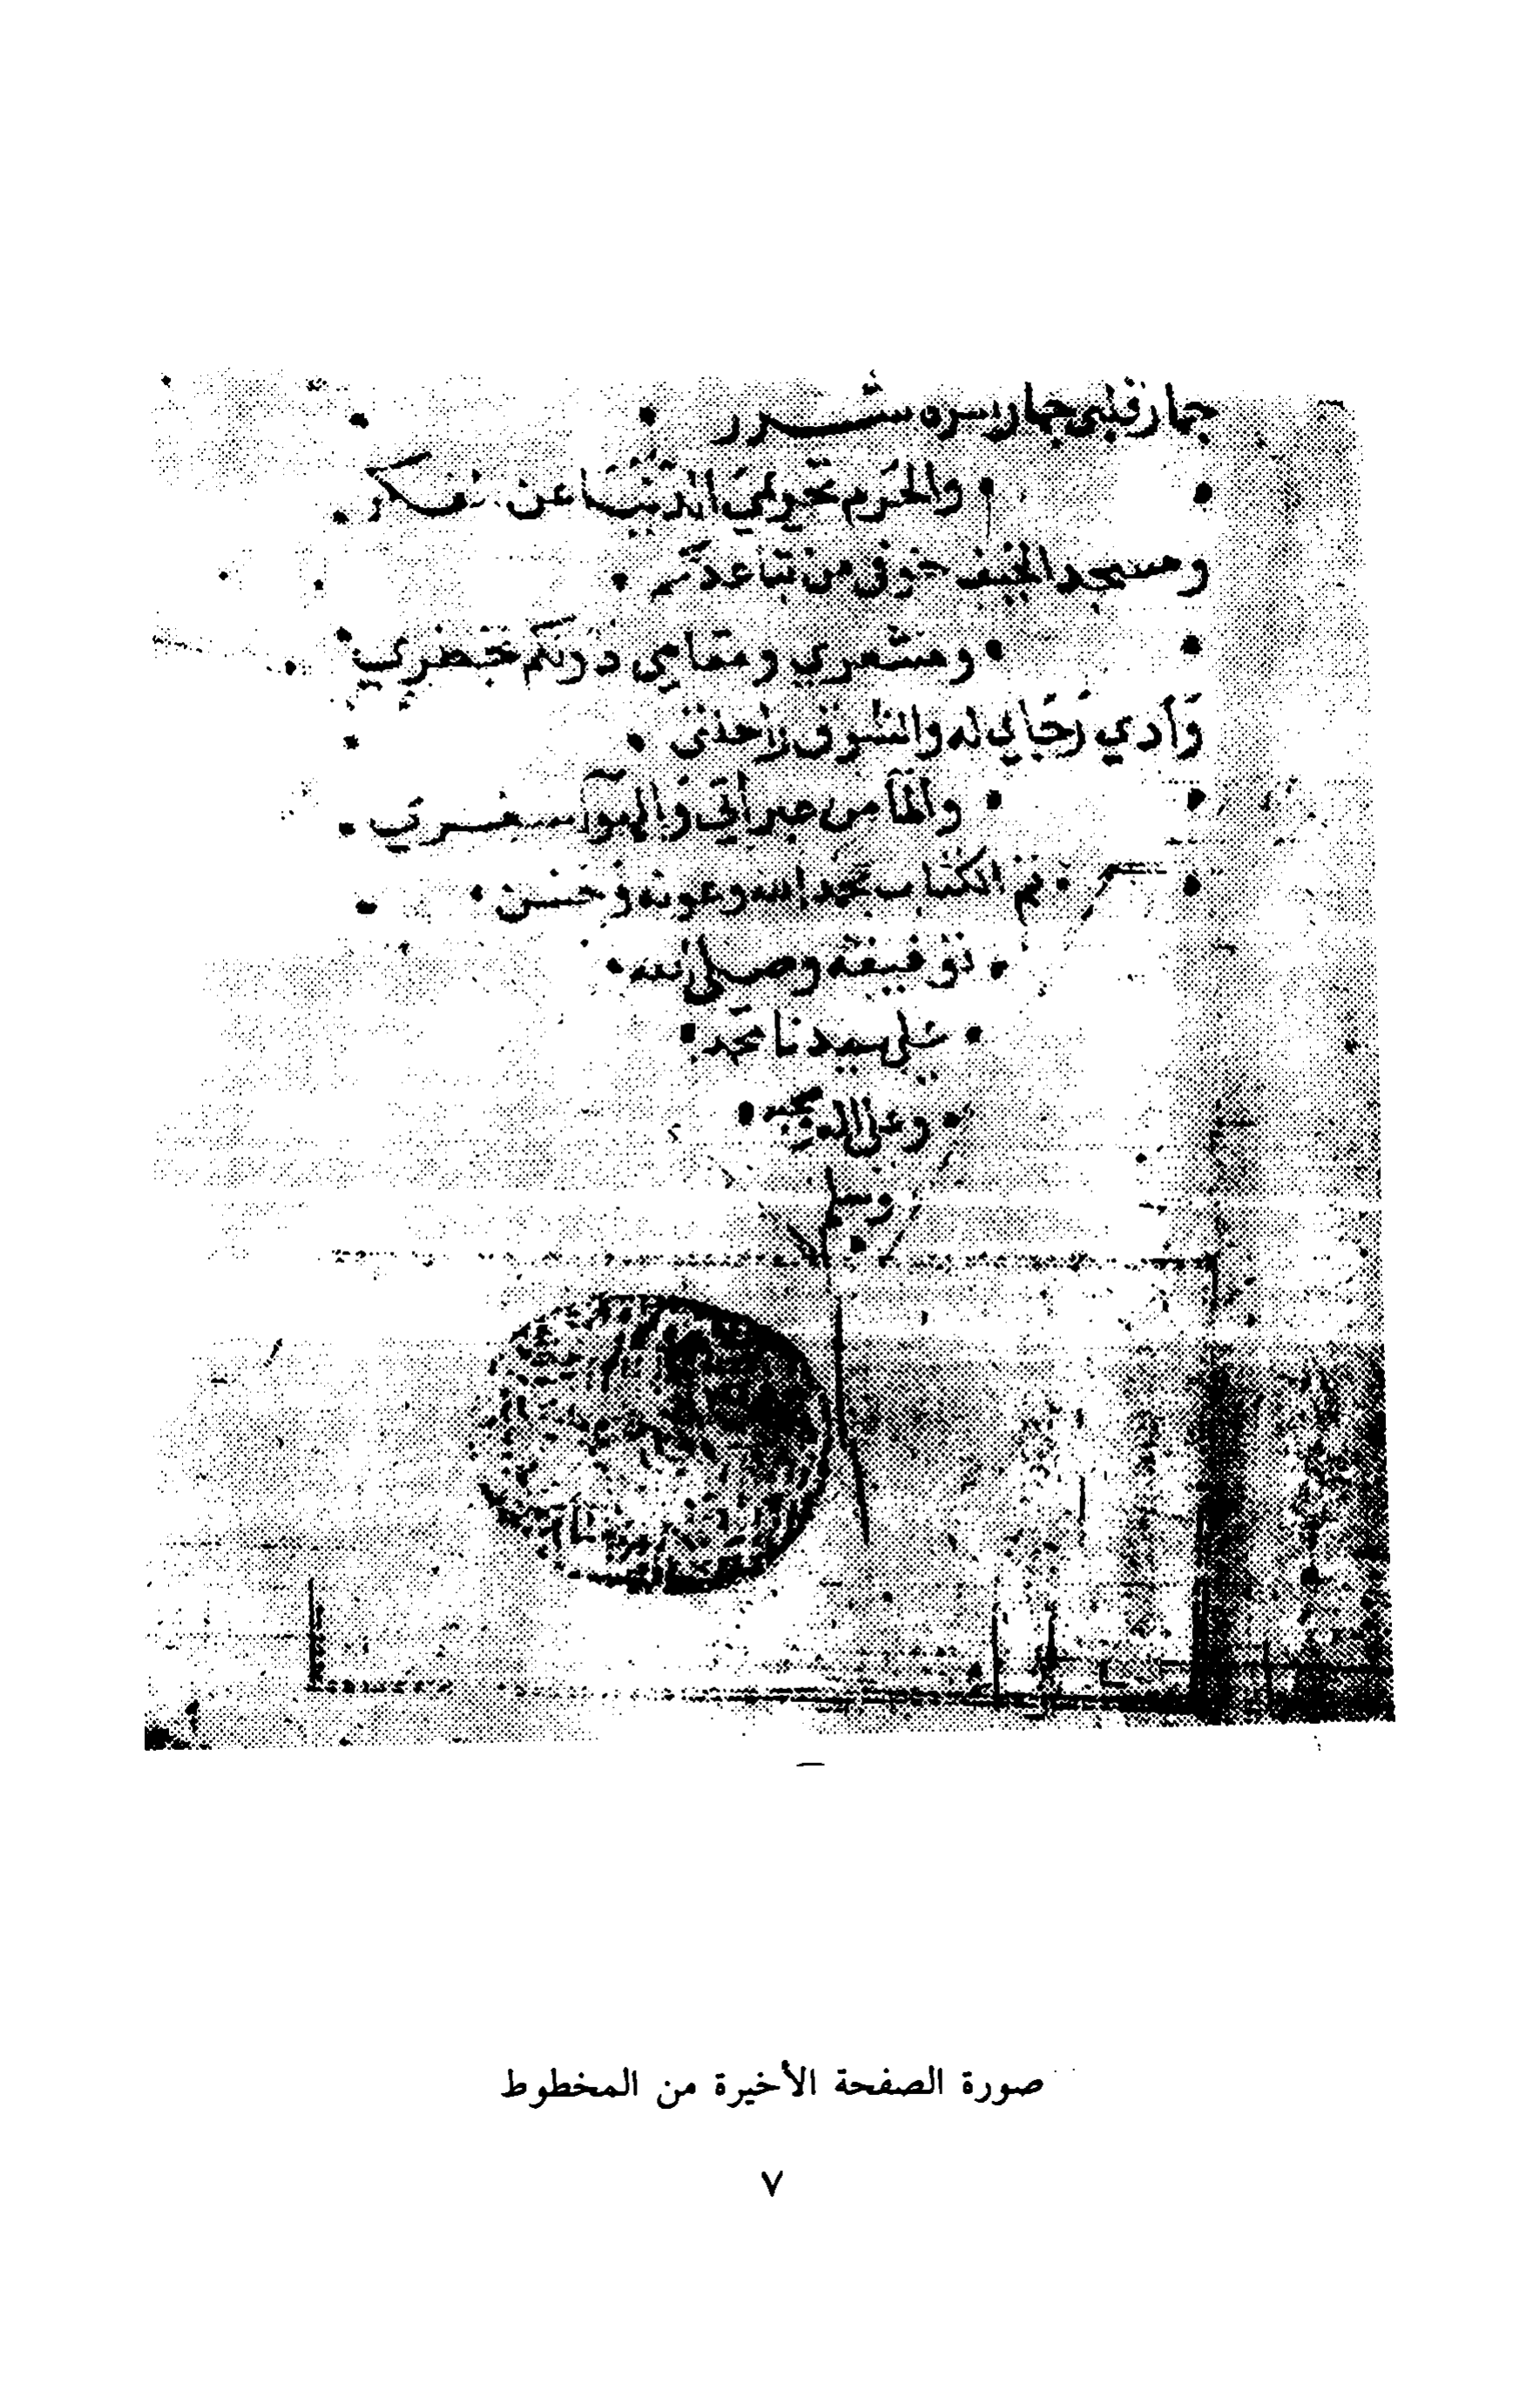 جمار قلبي جمار سره شرر
والحرم تحولي الدنيا عن فكر
ومسجد الخيف خوفي من تباعدكم
ومشعري ومقامي دونكم خضري
وادي رجالي له والشوق راحلتي
والماء من عبراتي والهوا سفري
تم الكتاب بحمد الله وعونه وحسن
توفيقه وصلى الله
على سيدنا محمد
وعلى اله وصحبه
وسلم
صورة الصفحة الأخيرة من المخطوط
٧